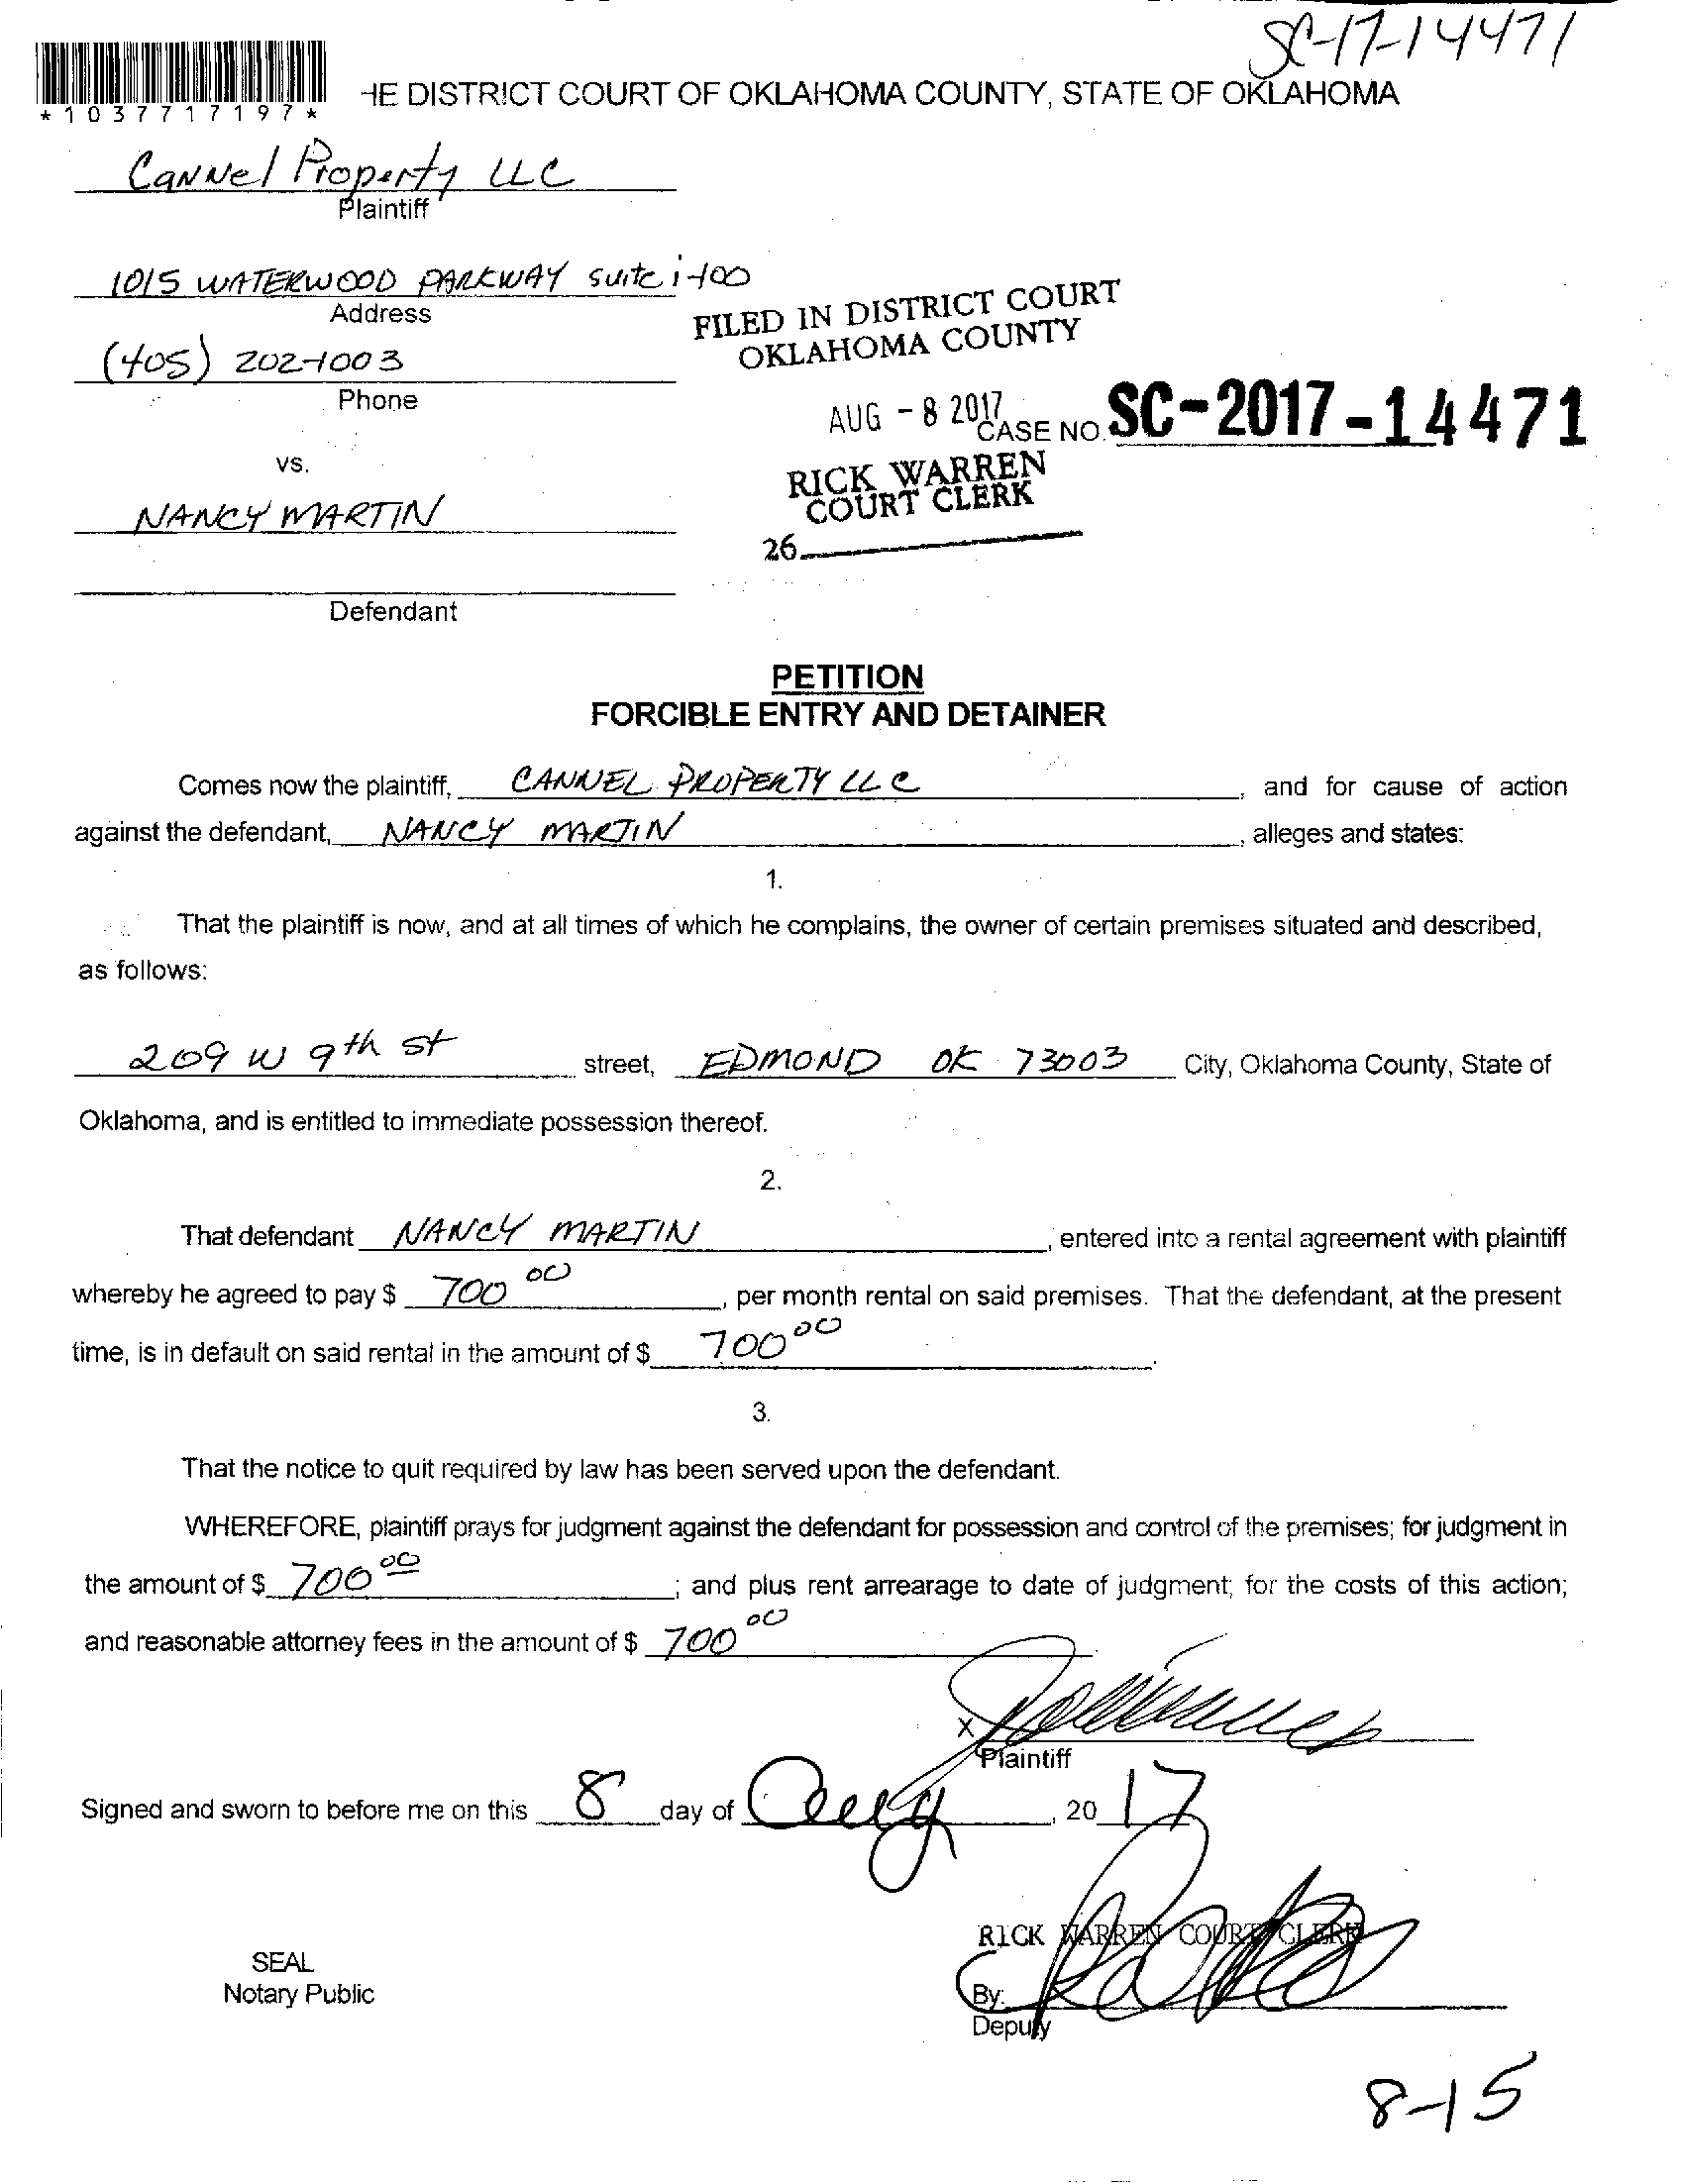 SC-17-14471
*1037717197*
HE DISTRICT COURT OF OKLAHOMA COUNTY, STATE OF OKLAHOMA
Cannel Property LLC
Plaintiff
1015 WATERWOOD PARKWAY suite
Address
FILED IN DISTRICT COURT
OKLAHOMA COUNTY
(405) 202-1003
Phone
AUG - 8 2017
CASE NO. SC-2017-14471
vs.
RICK WARREN
COURT CLERK
NANCY MARTIN
26
Defendant
PETITION
FORCIBLE ENTRY AND DETAINER
Comes now the plaintiff, CANNEL PROPERTY LLC, and for cause of action
against the defendant, NANCY MARTIN, alleges and states:
1.
That the plaintiff is now, and at all times of which he complains, the owner of certain premises situated and described,
as follows:
209 W 9th st street, EDMOND OK 73003 City, Oklahoma County, State of
Oklahoma, and is entitled to immediate possession thereof.
2.
That defendant NANCY MARTIN, entered into a rental agreement with plaintiff
whereby he agreed to pay $ 700 00, per month rental on said premises. That the defendant, at the present
time, is in default on said rental in the amount of $ 700 00.
3.
That the notice to quit required by law has been served upon the defendant.
WHEREFORE, plaintiff prays for judgment against the defendant for possession and control of the premises; for judgment in
the amount of $ 700 00; and plus rent arrearage to date of judgment; for the costs of this action;
and reasonable attorney fees in the amount of $ 700 00
X
Plaintiff
Signed and sworn to before me on this 8 day of Aug, 20 17
RICK WARREN COURT CLERK
SEAL
Notary Public
By:
Deputy
8-15